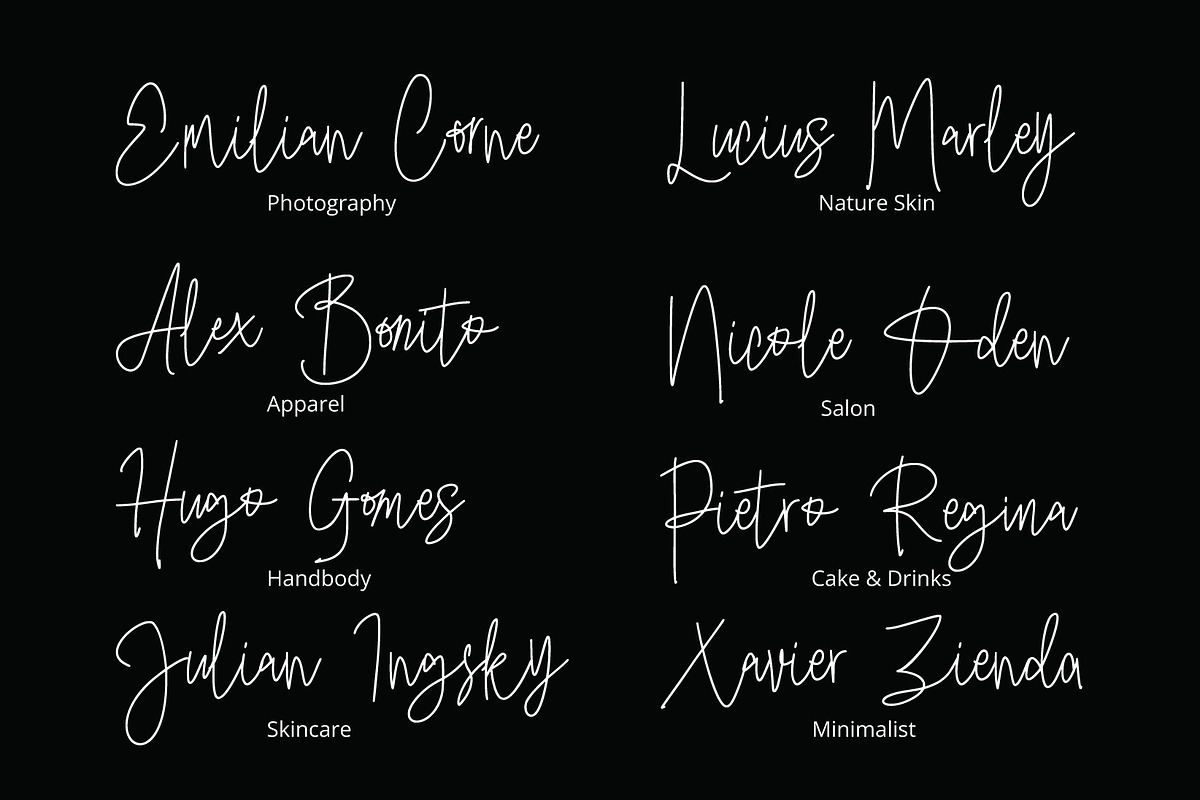 Emilian Corne
Photography
Lucius Marley
Nature Skin
Alex Bonito
Apparel
Nicole Oden
Salon
Hugo Gomes
Handbody
Pietro Regina
Cake & Drinks
Julian Ingsky
Skincare
Xavier Zienda
Minimalist